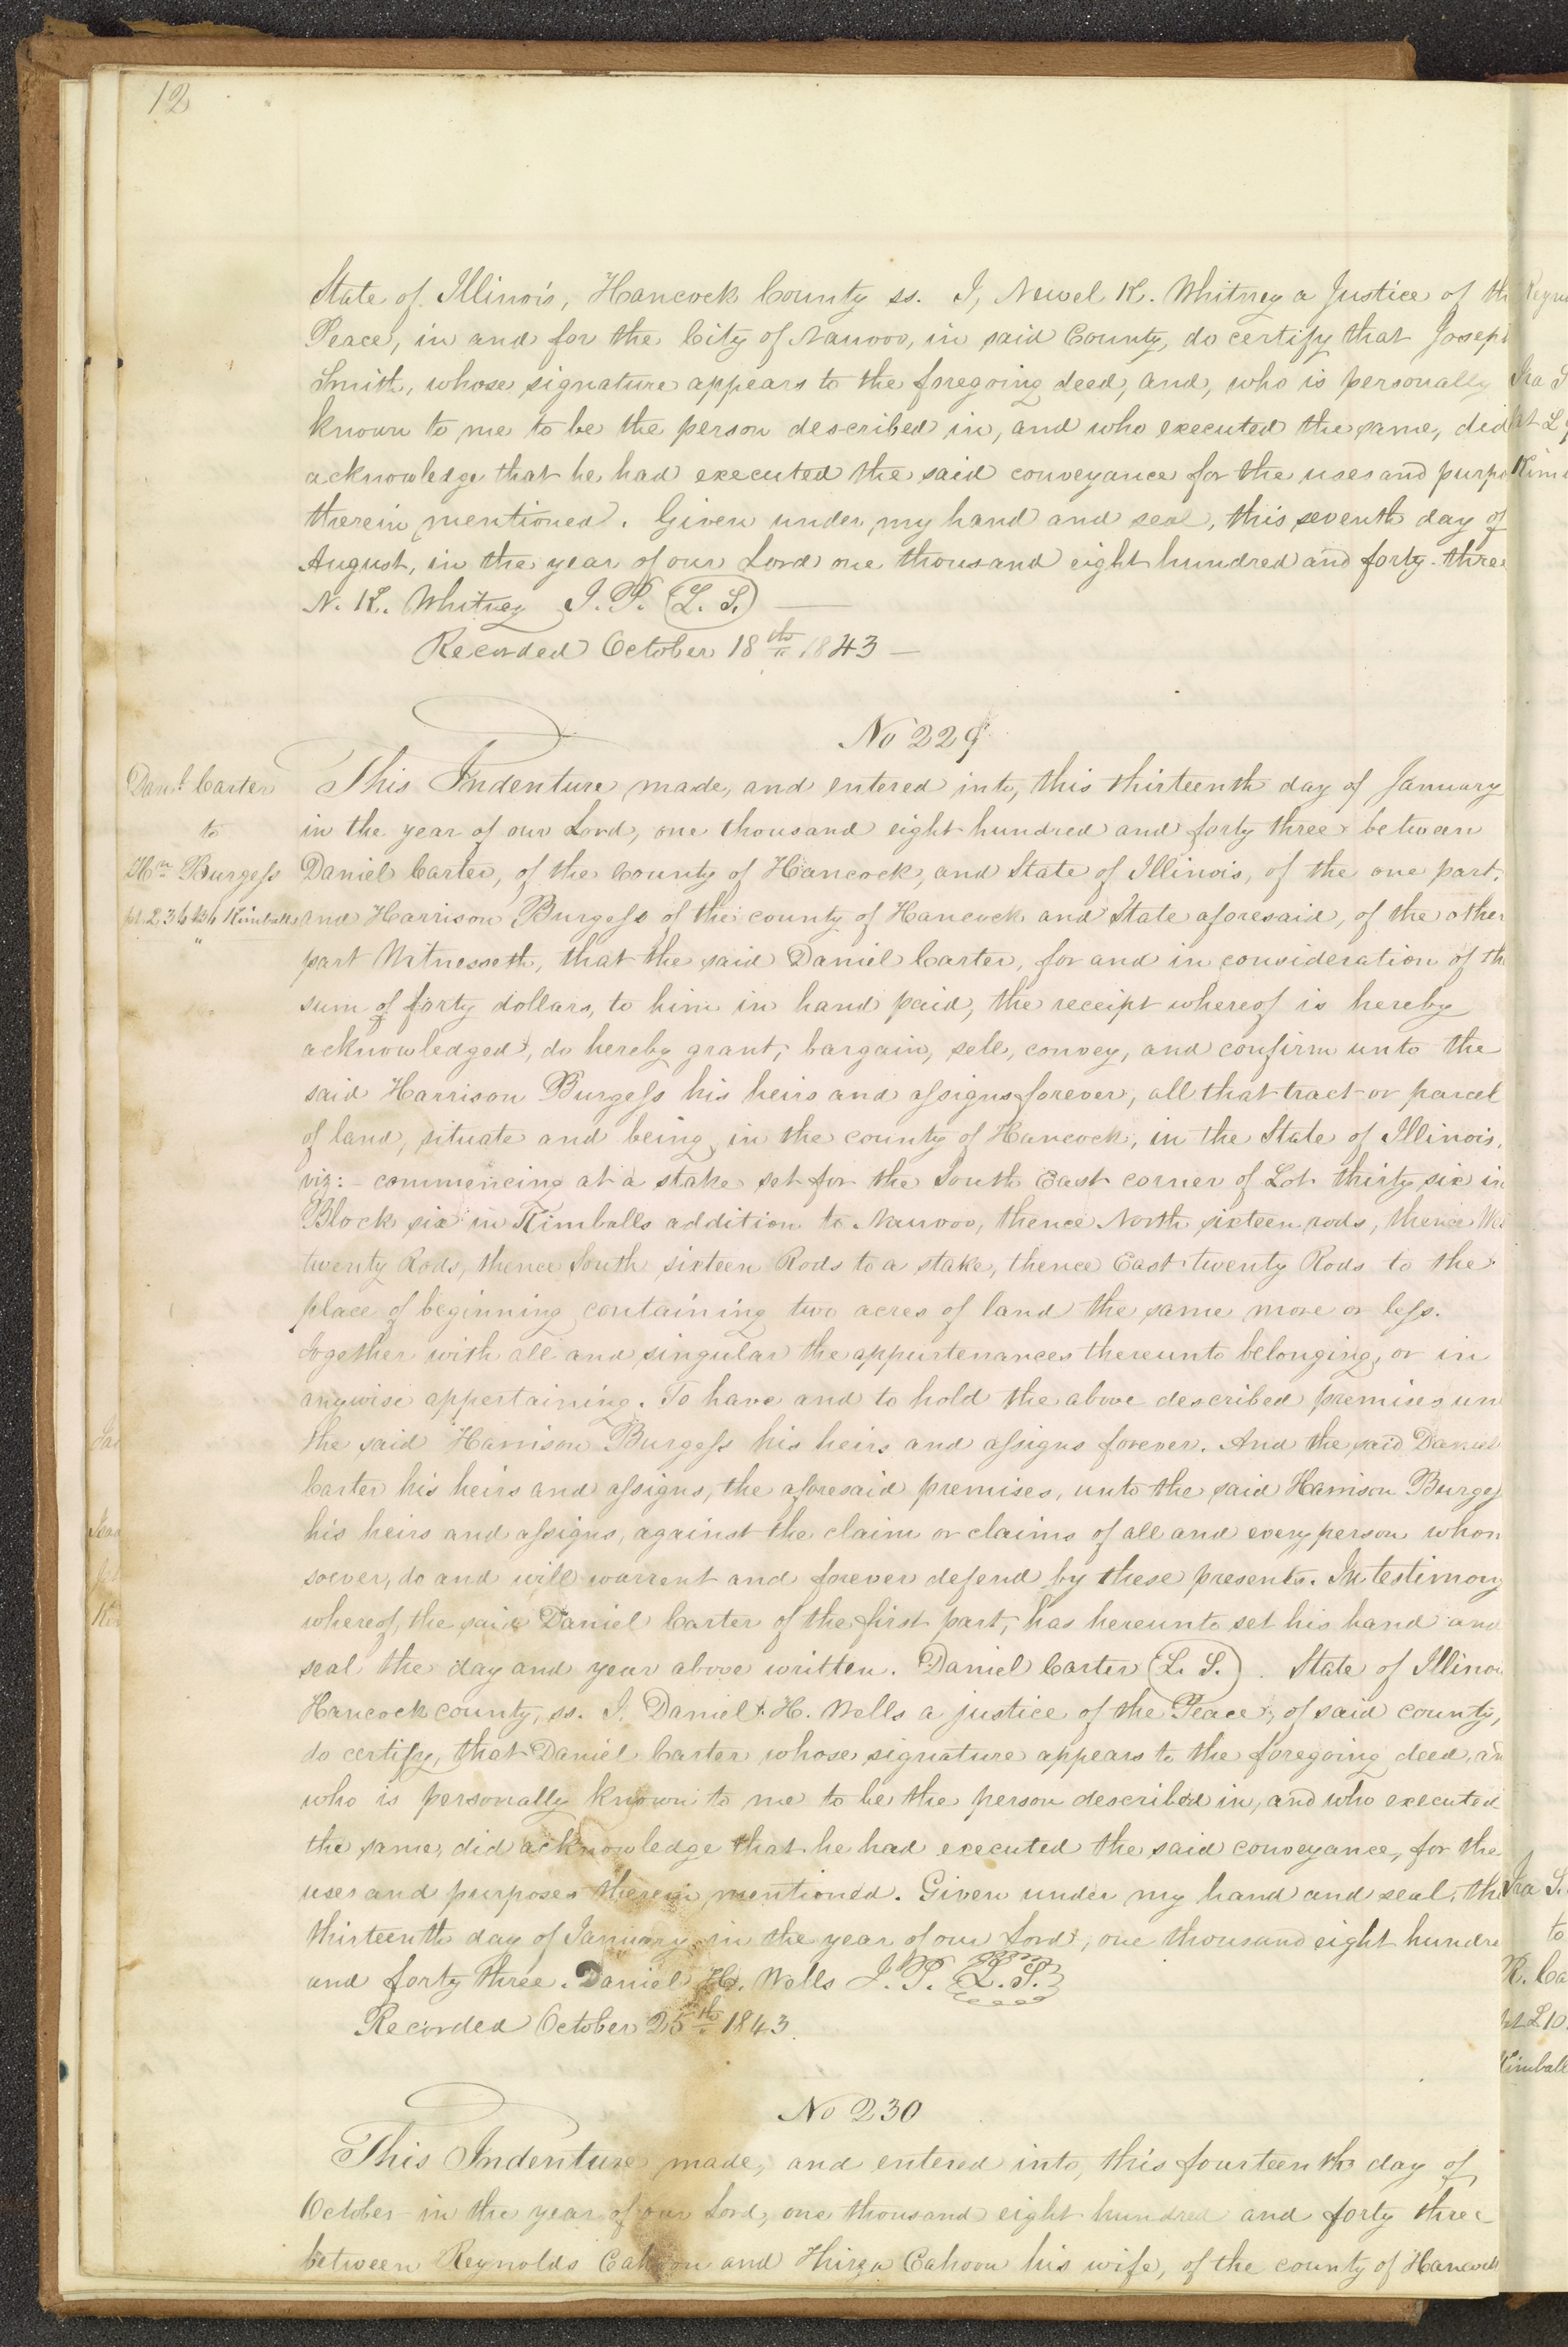 12
State of Illinois, Hancock County ss. I, Newel K. Whitney a Justice of th
Peace, in and for the City of Nauvoo, in said County, do certify that Joseph
Smith, whose signature appears to the foregoing deed, and, who is personally
known to me to be the person described in, and who executed the same, did
acknowledge that he had executed the said conveyance for the uses and purpo
therein mentioned. Given under my hand and seal, this seventh day of
August, in the year of our Lord one thousand eight hundred and forty-three
N. K. Whitney J.P. (L. S.)
Recorded October 18th 1843 —
No 229
Danl. Carter
to
Hn. Burgess
This Indenture made, and entered into, this thirteenth day of January
in the year of our Lord, one thousand eight hundred and forty three between
Daniel Carter, of the County of Hancock, and State of Illinois, of the one part,
and Harrison Burgess of the county of Hancock and State aforesaid, of the other
part Witnesseth, that the said Daniel Carter, for and in consideration of th
sum of forty dollars, to him in hand paid, the receipt whereof is hereby
acknowledged, do hereby grant, bargain, sell, convey, and confirm unto the
said Harrison Burgess his heirs and assigns forever, all that tract or parcel
of land, situate and being in the county of Hancock, in the State of Illinois,
viz:- commencing at a stake set for the South East corner of Lot thirty six in
Block six in Kimballs addition to Nauvoo, thence North sixteen rods, thence We
twenty Rods, thence South sixteen Rods to a stake, thence East twenty Rods to the
place of beginning containing two acres of land the same more or less.
together with all and singular the appurtenances thereunto belonging, or in
anywise appertaining. To have and to hold the above described premises un
the said Harrison Burgess his heirs and assigns forever. And the said Daniel
Carter his heirs and assigns, the aforesaid premises, unto the said Harrison Burges
his heirs and assigns, against the claim or claims of all and every person whom
soever, do and will warrent and forever defend by these presents. In testimony
whereof, the said Daniel Carter of the first part, has hereunto set his hand and
seal the day and year above written. Daniel Carter (L. S.). State of Illinoi
Hancock county, ss. I, Daniel H. Wells a justice of the Peace, of said county,
do certify, that Daniel Carter whose signature appears to the foregoing deed, an
who is personally known to me to be the person described in, and who executed
the same, did acknowledge that he had executed the said conveyance, for the
uses and purposes therein mentioned. Given under my hand and seal, thi
thirteenth day of January in the year of our Lord, one thousand eight hundre
and forty three. Daniel H. Wells J.P. L. S.
Recorded October 25th 1843.
No 230
This Indenture made, and entered into, this fourteenth day of
October in the year of our Lord, one thousand eight hundred and forty three
between Reynolds Cahoon and Thirza Cahoon his wife, of the county of Hancock